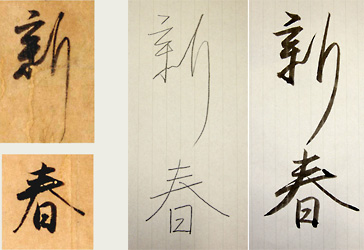 新
春
新
春
新
春